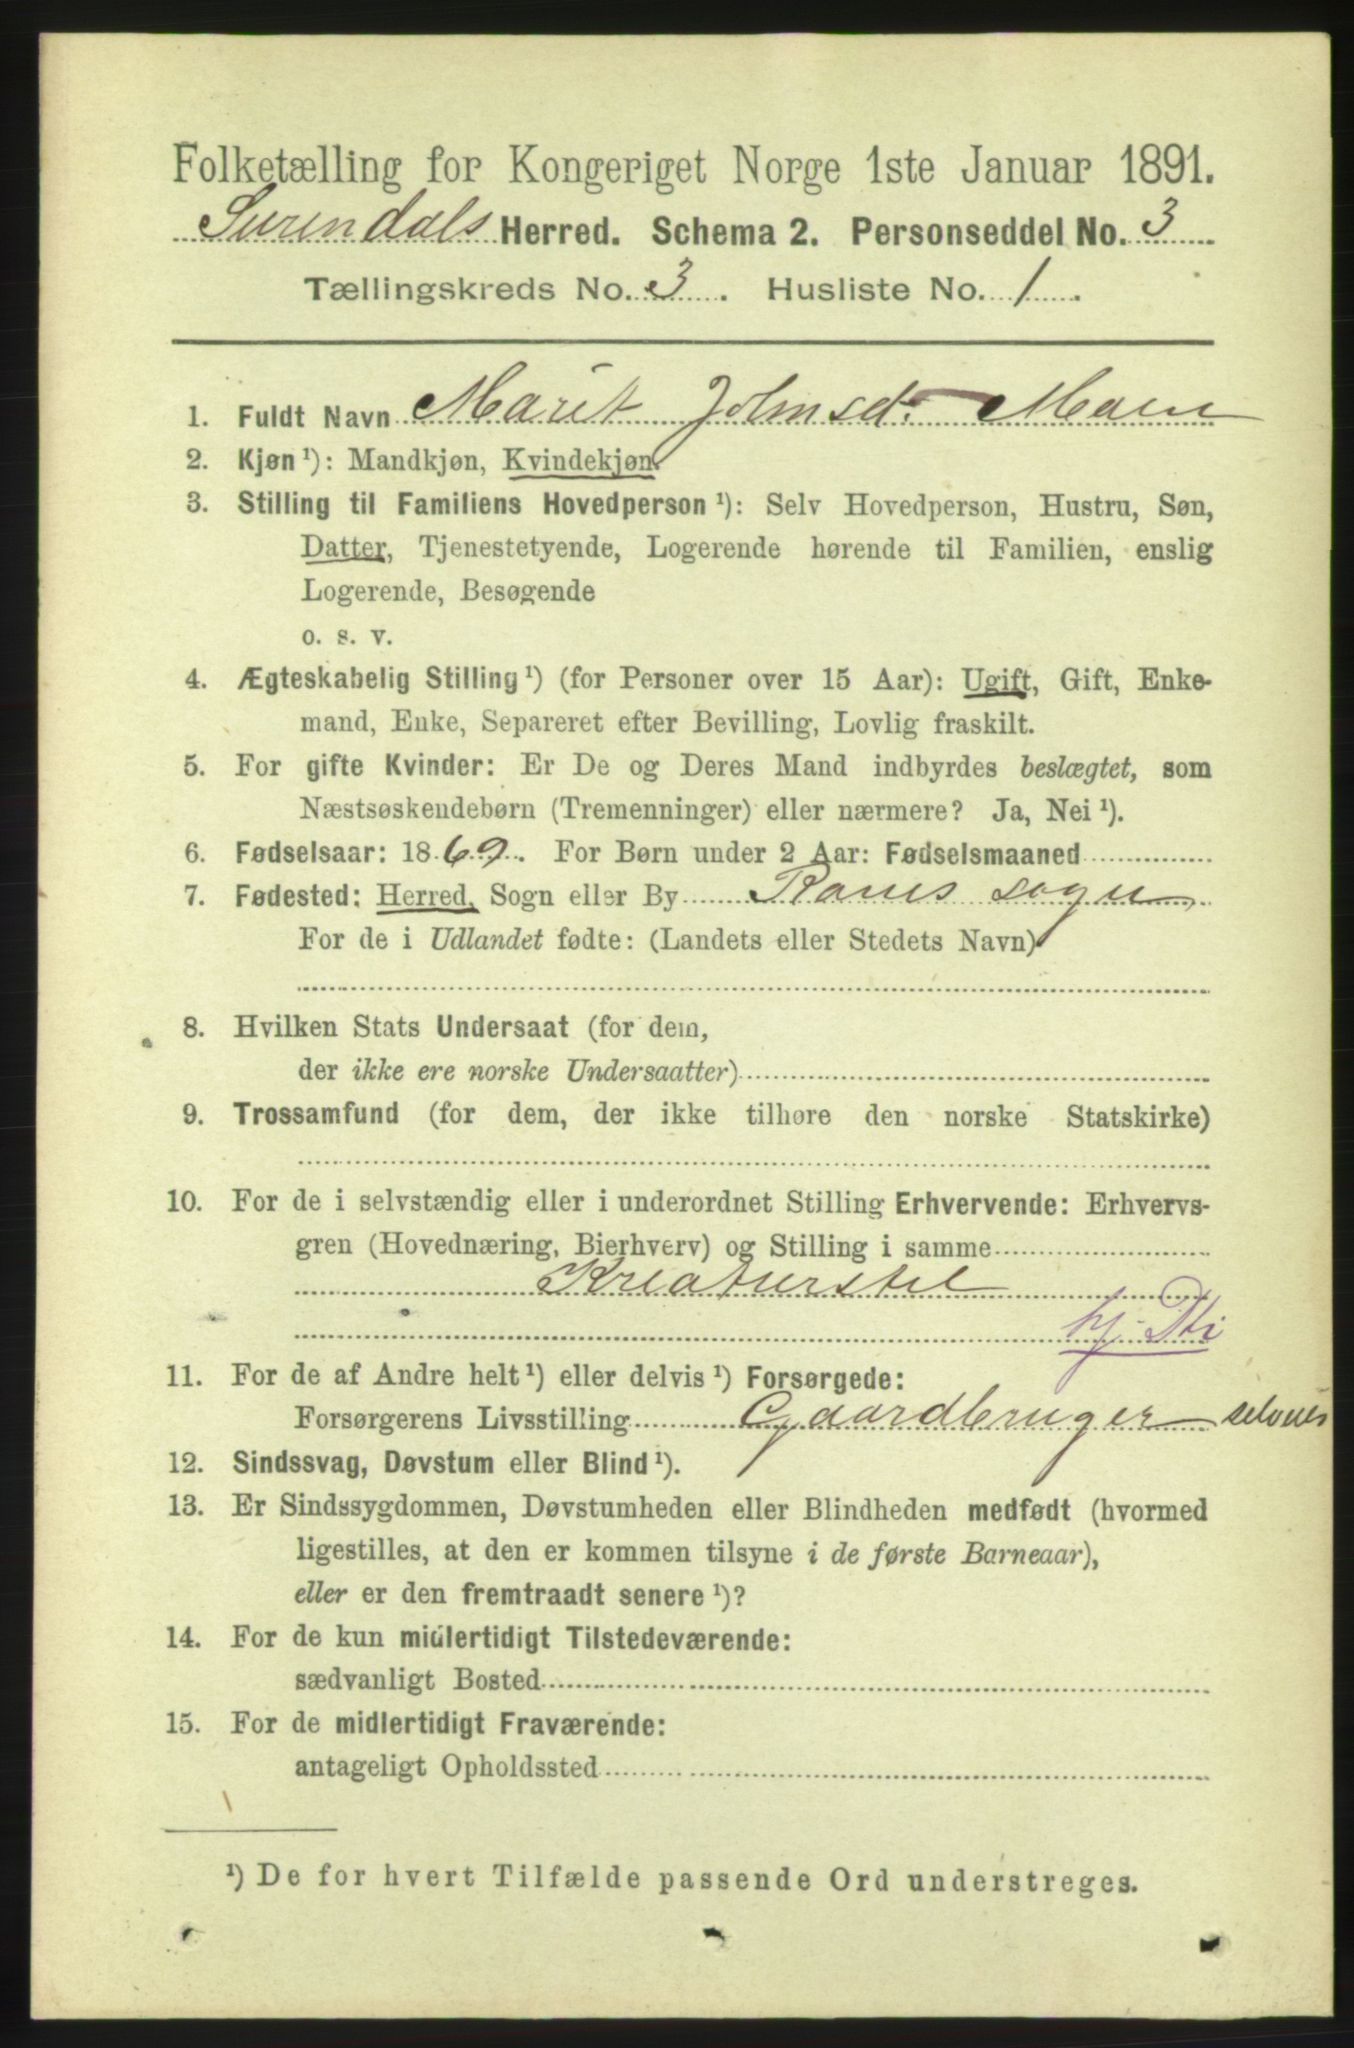 Folketælling for Kongeriget Norge 1ste Januar 1891.
Surendals Herred. Schema 2. Personseddel No. 3
Tællingskreds No. 3. Husliste No. 1.
1. Fuldt Navn Marit Johnsd. Moen
2. Kjøn ¹): Mandkjøn, Kvindekjøn.
3. Stilling til Familiens Hovedperson ¹): Selv Hovedperson, Hustru, Søn,
Datter, Tjenestetyende, Logerende hørende til Familien, enslig
Logerende, Besøgende
o. s. v.
4. Ægteskabelig Stilling ¹) (for Personer over 15 Aar): Ugift, Gift, Enke-
mand, Enke, Separeret efter Bevilling, Lovlig fraskilt.
5. For gifte Kvinder: Er De og Deres Mand indbyrdes beslægtet, som
Næstsøskendebørn (Tremenninger) eller nærmere? Ja, Nei ¹).
6. Fødselsaar: 1869. For Børn under 2 Aar: Fødselsmaaned
7. Fødested: Herred, Sogn eller By Ranes sogn
For de i Udlandet fødte: (Landets eller Stedets Navn)
8. Hvilken Stats Undersaat (for dem,
der ikke ere norske Undersaatter)
9. Trossamfund (for dem, der ikke tilhøre den norske Statskirke)
10. For de i selvstændig eller i underordnet Stilling Erhvervende: Erhvervs-
gren (Hovednæring, Bierhverv) og Stilling i samme
Kreaturstel
hj. Dtr
11. For de af Andre helt ¹) eller delvis ¹) Forsørgede:
Forsørgerens Livsstilling Gaardbruger selveier
12. Sindssvag, Døvstum eller Blind ¹).
13. Er Sindssygdommen, Døvstumheden eller Blindheden medfødt (hvormed
ligestilles, at den er kommen tilsyne i de første Barneaar),
eller er den fremtraadt senere ¹)?
14. For de kun midlertidigt Tilstedeværende:
sædvanligt Bosted
15. For de midlertidigt Fraværende:
antageligt Opholdssted
¹) De for hvert Tilfælde passende Ord understreges.